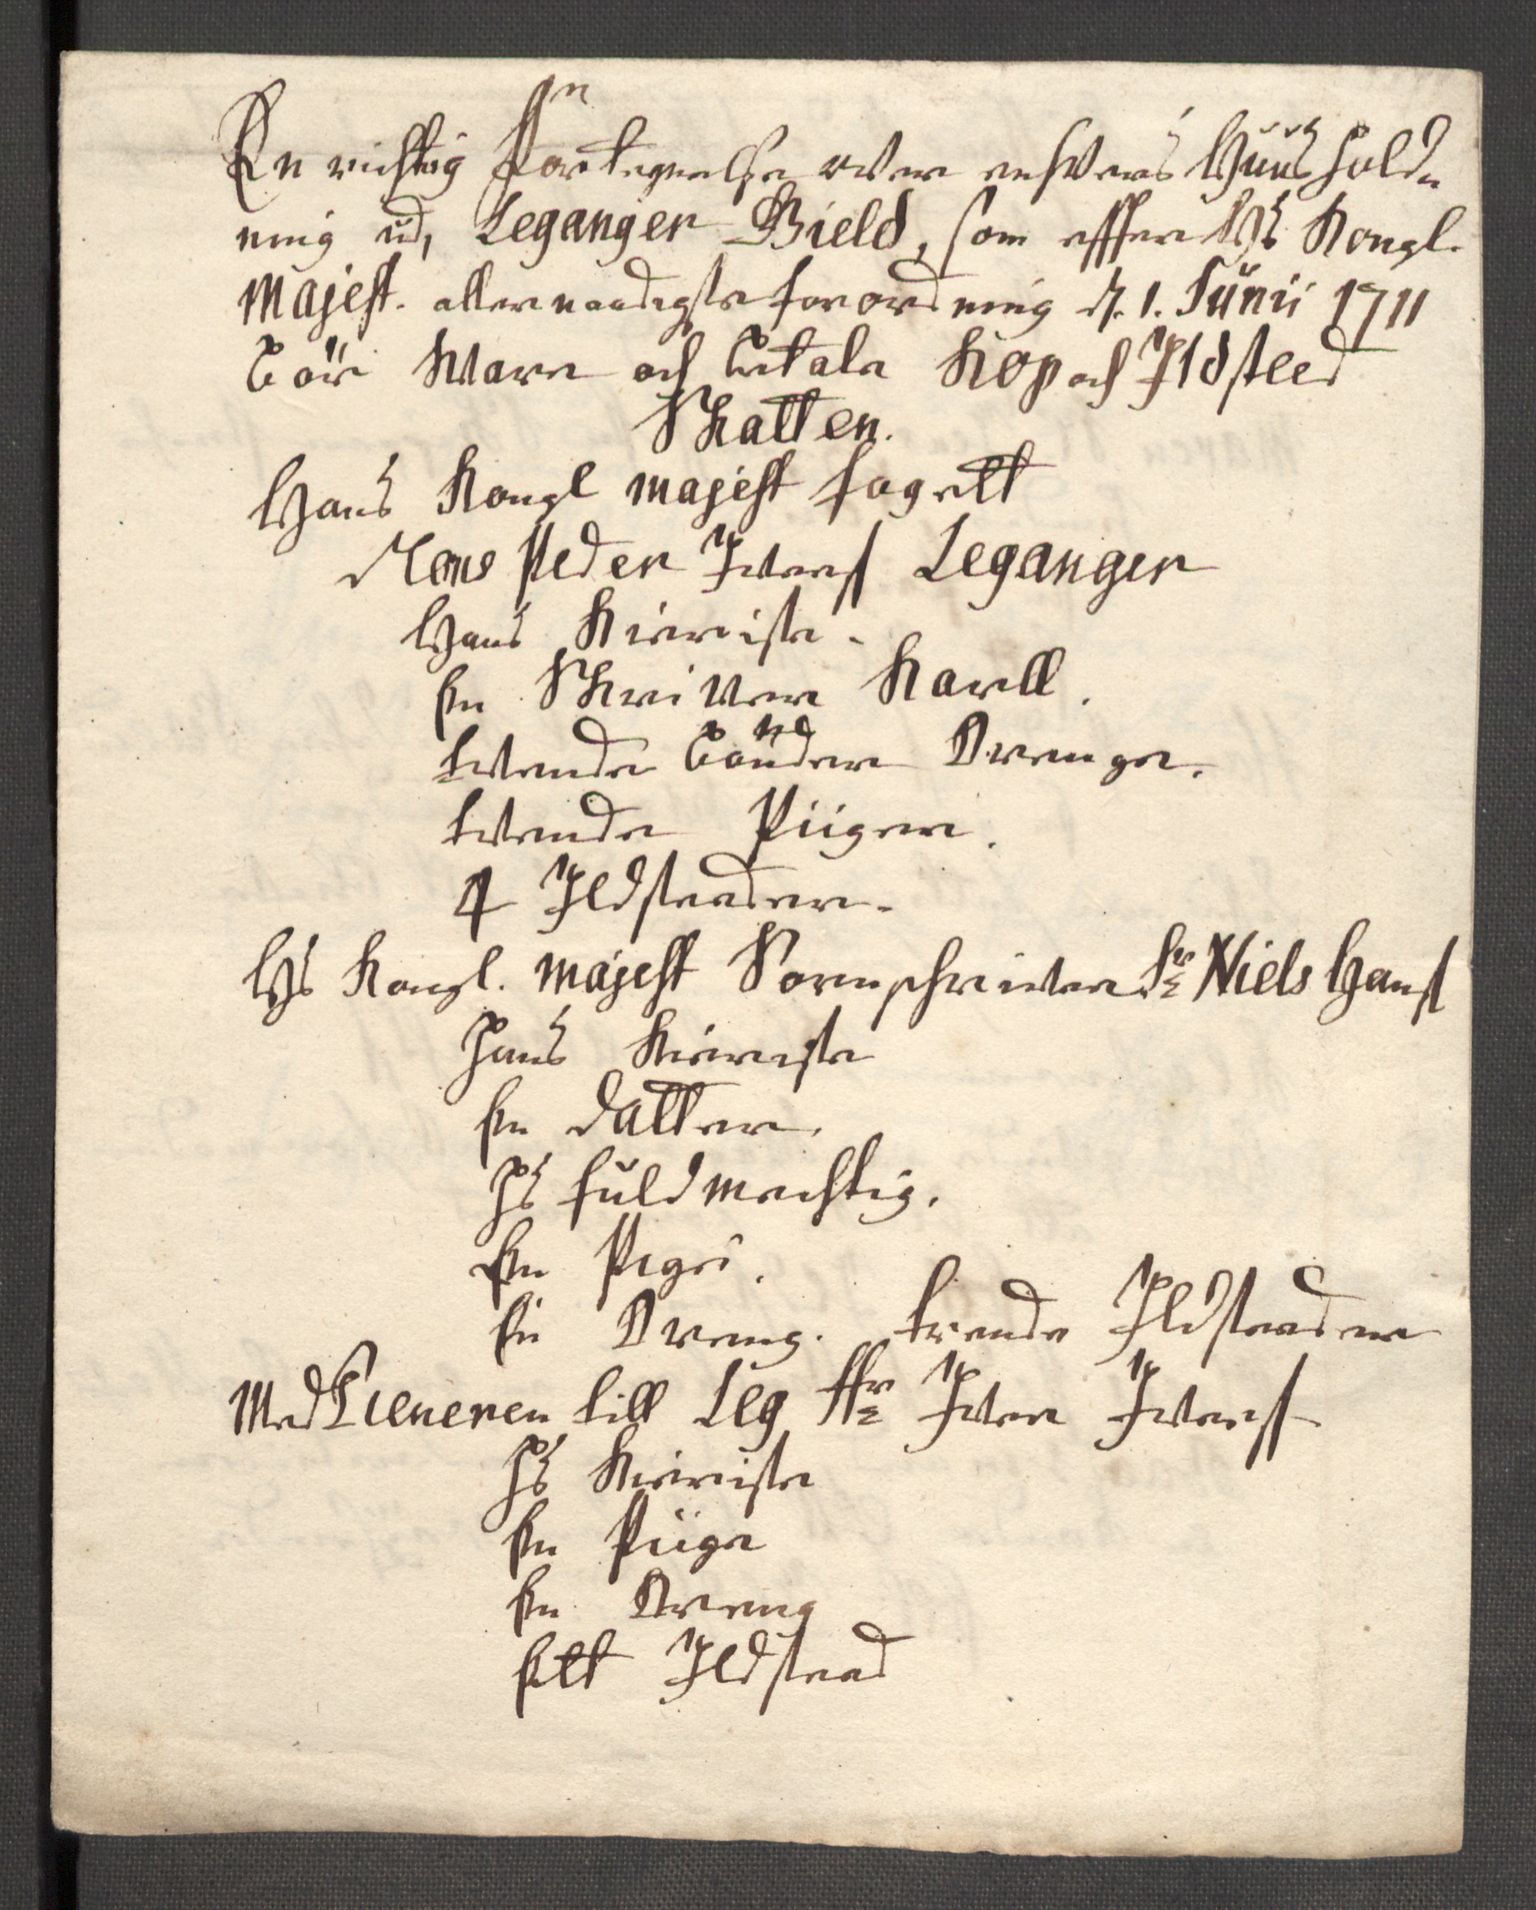 En richtig Fortegnelse over enhvers Huus hold=
ning ud, Leganger Gield, som effter Hs Kongl.
Majest. allernaadigste forordning d. 1. Junii 1711
bör svare och betale Kop och Ildsteed
Skatten.
Hans Kongl Majest fogett
Mons Peder Iversß Leganger
Hans Kieriste.
En Skriver Karll.
tvende bönder Drenge.
tvende Piiger.
4 Ildsteeder.
Hs Kongl. Majest Sorenschriver Sr Niels Hansß
Hans Kieriste
En datter.
Hs fuldmechtig.
En Pige.
En Dreng. trende Ildsteeder
Med Tieneren till Leg Hr Iver Iversß
Hs Kieriste
En Piige
En Dreng
Ett Ildsteed